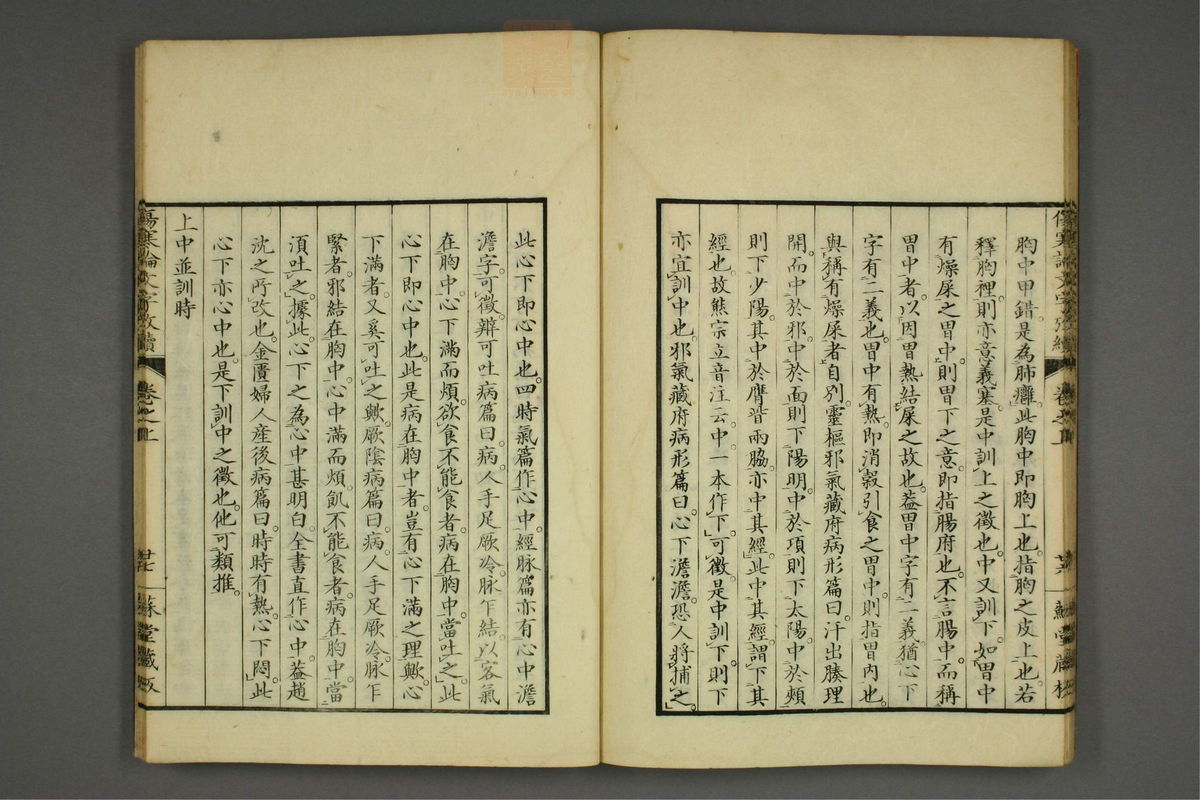 胸中甲錯。是為肺癰。此胸中即胸上也。指胸之皮上也。若
釋胸裡。則亦意義塞。是中訓上之徵也。中又訓下。如胃中
有燥屎之胃中。則胃下之意。即指腸府也。不言腸中。而稱
胃中者。以因胃熱結屎之故也。蓋胃中字有二義。猶心下
字有二義也。胃中有熱。即消穀引食之胃中。則指胃内也。
與稱有燥屎者自別。靈樞邪氣藏府病形篇曰。汗出腠理
開。而中於邪。中於面則下陽明。中於項則下太陽。中於頰
則下少陽。其中於膺背兩脇。亦中其經。此中其經。謂下其
經也。故熊宗立音注云。中一本作下。可徵。是中訓下。則下
亦宜訓中也。邪氣藏府病形篇曰。心下澹澹。恐人將捕之。
此心下即心中也。四時氣篇作心中。經脉篇亦有心中澹
澹字。可徵。辯可吐病篇曰。病人手足厥冷。脉乍結。以客氣
在胸中。心下滿而煩。欲食不能食者。病在胸中。當吐之。此
心下即心中也。此是病在胸中者。豈有心下滿之理歟。心
下滿者。又奚可吐之歟。厥陰病篇曰。病人手足厥冷。脉乍
緊者。邪結在胸中。心中滿而煩。飢不能食者。病在胸中。當
須吐之。據此。心下之為心中甚明白。全書直作心中。蓋趙
沈之所改也。金匱婦人産後病篇曰。時時有熱。心下悶。此
心下亦心中也。是下訓中之徵也。他可類推。
上中並訓時
傷寒論文字攷續
卷之上